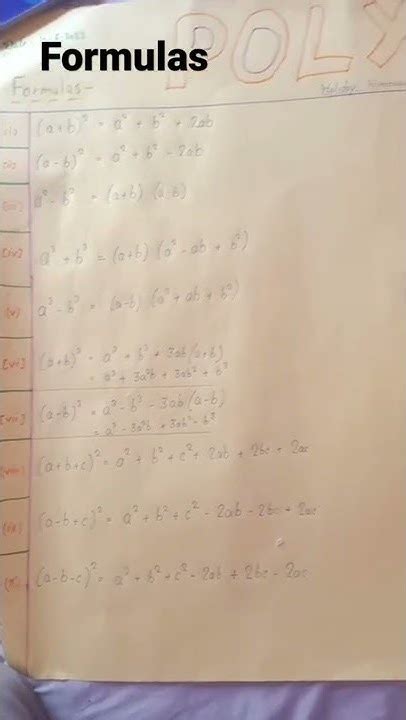 Formulas
POLY
Formulas-
(i) (a+b)² = a² + b² + 2ab
(ii) (a-b)² = a² + b² - 2ab
(iii) a² - b² = (a+b) (a-b)
(iv) a³ + b³ = (a+b) (a² - ab + b²)
(v) a³ - b³ = (a-b) (a² + ab + b²)
(vi) (a+b)³ = a³ + b³ + 3ab(a+b)
= a³ + 3a²b + 3ab² + b³
(vii) (a-b)³ = a³ - b³ - 3ab(a-b)
= a³ - 3a²b + 3ab² - b³
(viii) (a+b+c)² = a² + b² + c² + 2ab + 2bc + 2ac
(ix) (a-b+c)² = a² + b² + c² - 2ab - 2bc + 2ac
(x) (a-b-c)² = a² + b² + c² - 2ab + 2bc - 2ac